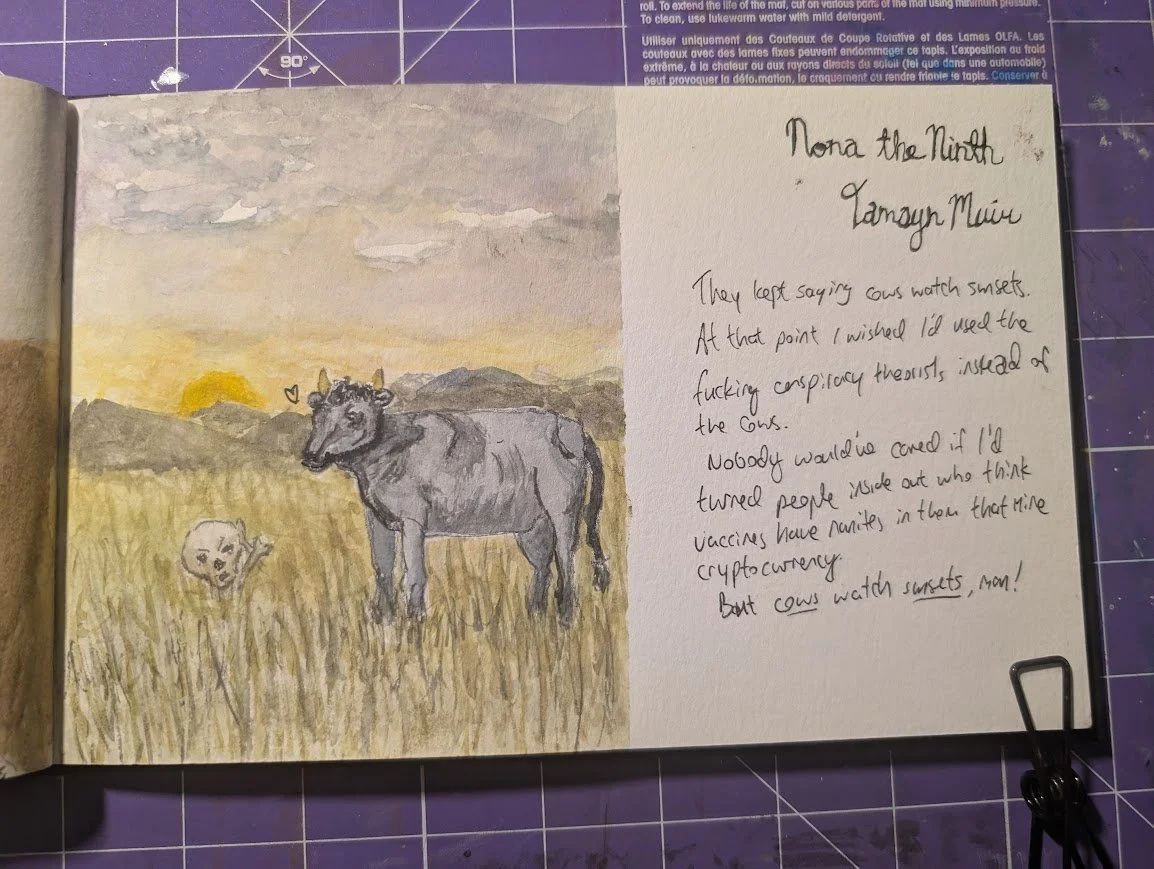 roll. To extend the life of the mat, cut on various parts of the mat using minimum pressure.
To clean, use lukewarm water with mild detergent.
Utiliser uniquement des Couteaux de Coupe Rotative et des Lames OLFA. Les
couteaux avec des lames fixes peuvent endommager ce tapis. L'exposition au froid
extrême, à la chaleur ou aux rayons directs du soleil (tel que dans une automobile)
peut provoquer la déformation, le craquement ou rendre friable le tapis. Conserver à
90°
Nona the Ninth
Tamsyn Muir
They kept saying cows watch sunsets.
At that point I wished I'd used the
fucking conspiracy theorists instead of
the cows.
Nobody would've cared if I'd
turned people inside out who think
vaccines have nanites in them that mine
cryptocurrency.
But cows watch sunsets, man!